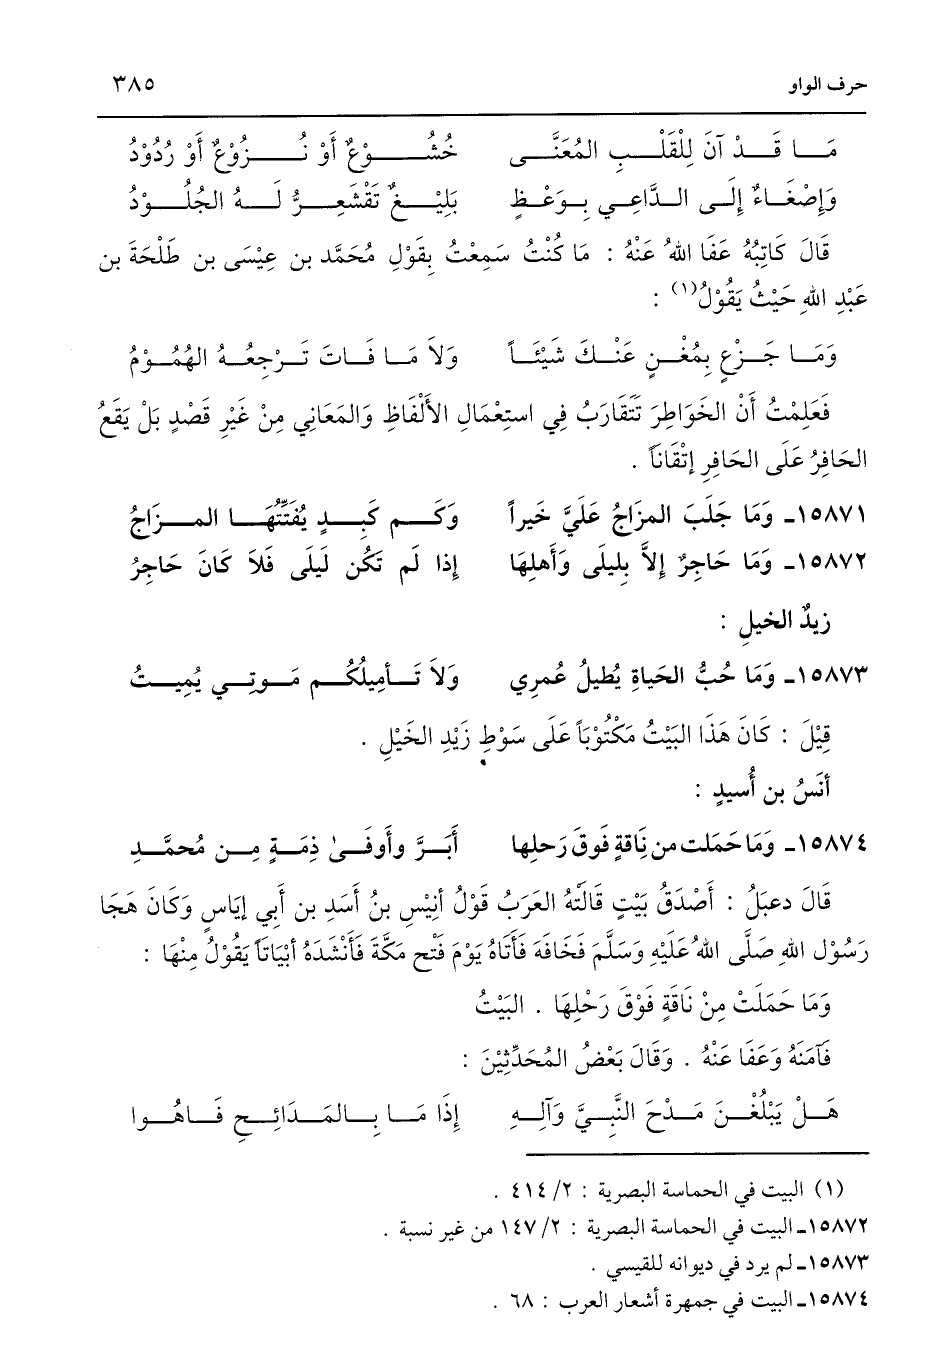 حرف الواو ٣٨٥
مَا قَدْ آنَ لِلْقَلْبِ المُعَنَّى خُشُوْعٌ أَوْ نُزُوْعٌ أَوْ رُدُوْدُ
وَإِصْغَاءٌ إِلَى الدَّاعِي بِوَعْظٍ بَلِيْغٌ تَقْشَعِرُّ لَهُ الجُلُوْدُ
قَالَ كَاتِبُهُ عَفَا اللهُ عَنْهُ : مَا كُنْتُ سَمِعْتُ بِقَوْلِ مُحَمَّد بن عِيْسَى بن طَلْحَةَ بن
عَبْدِ اللهِ حَيْثُ يَقُوْلُ(١) :
وَمَا جَزْعٍ بِمُغْنٍ عَنْكَ شَيْئَاً وَلاَ مَا فَاتَ تَرْجِعُهُ الهُمُوْمُ
فَعَلِمْتُ أَنْ الخَوَاطِرَ تَتَقَارَبُ فِي استِعْمَالِ الأَلْفَاظِ وَالمَعَانِي مِنْ غَيْرِ قَصْدٍ بَلْ يَقَعُ
الحَافِرُ عَلَى الحَافِرِ إتْقَاناً .
١٥٨٧١ـ وَمَا جَلَبَ المزَاجُ عَلَيَّ خَيراً وَكَم كَبِدٍ يُفَتِّتُهَا المزَاجُ
١٥٨٧٢ـ وَمَا حَاجِرٌ إِلاَّ بِلَيلَى وَأَهلِهَا إذا لَم تَكُن لَيلَى فَلاَ كَانَ حَاجِرُ
زيدُ الخيلِ :
١٥٨٧٣ـ وَمَا حُبُّ الحَيَاةِ يُطيلُ عُمرِي وَلاَ تَأميلُكُم مَوتِي يُمِيتُ
قِيْلَ : كَانَ هَذَا البَيْتُ مَكْتُوْبَاً عَلَى سَوْطِ زَيْدِ الخَيْلِ .
أنَسُ بن أُسيدٍ :
١٥٨٧٤ـ وَمَا حَمَلت من نَاقةٍ فَوقَ رَحلِها أَبَرَّ وأَوفَىٰ ذِمَةٍ مِن مُحمَّدِ
قَالَ دعبَلُ : أَصْدَقُ بَيْتٍ قَالَتْهُ العَرَبُ قَوْلُ أَنِيْسِ بنُ أَسَدِ بن أَبي إيَاسٍ وَكَانَ هَجَا
رَسُوْل اللهِ صَلَّى اللهُ عَلَيْهِ وَسَلَّمَ فَخَافَهَ فَأَتَاهُ يَوْمَ فَتْحِ مَكَّةَ فَأَنْشَدَهُ أبْيَاتاً يَقُوْلُ مِنْهَا :
وَمَا حَمَلَتْ مِنْ نَاقَةٍ فَوْقَ رَحْلِهَا . البَيْتُ
فَآمَنَهُ وَعَفَا عَنْهُ . وَقَالَ بَعْضُ المُحَدِّثِيْنَ :
هَلْ يَبْلُغْنَ مَدْحَ النَّبِيِّ وَآلِهِ إِذَا مَا بِالمَدَائِحِ فَاهُوا
(١) البيت في الحماسة البصرية : ٢/ ٤١٤ .
١٥٨٧٢ـ البيت في الحماسة البصرية : ٢/ ١٤٧ من غير نسبة .
١٥٨٧٣ـ لم يرد في ديوانه للقيسي .
١٥٨٧٤ـ البيت في جمهرة أشعار العرب : ٦٨ .